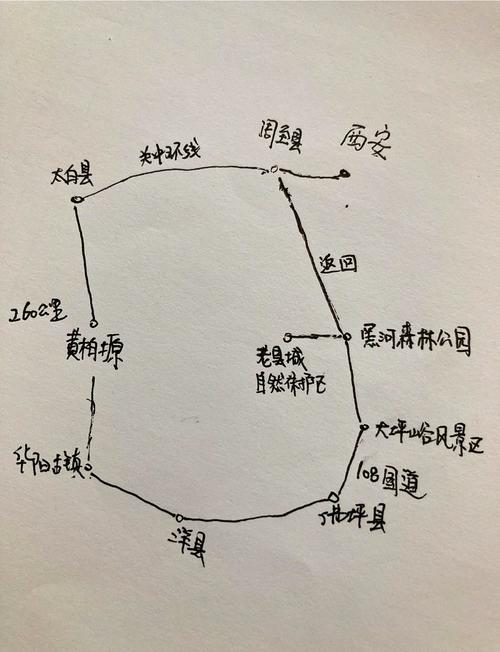 周至县
西安
关中环线
太白县
返回
260公里
黄柏塬
黑河森林公园
老县城
自然保护区
大坪峪风景区
华阳古镇
108国道
佛坪县
洋县